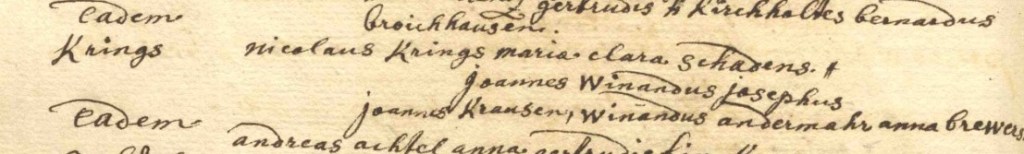 gertrudis Kirchholtes bernardus
Eadem broichhausen.
Krings nicolaus Krings maria clara schadens.
joannes winandus josephus
Eadem joannes Krausen, winandus andermahr anna brewers
andreas achtel anna